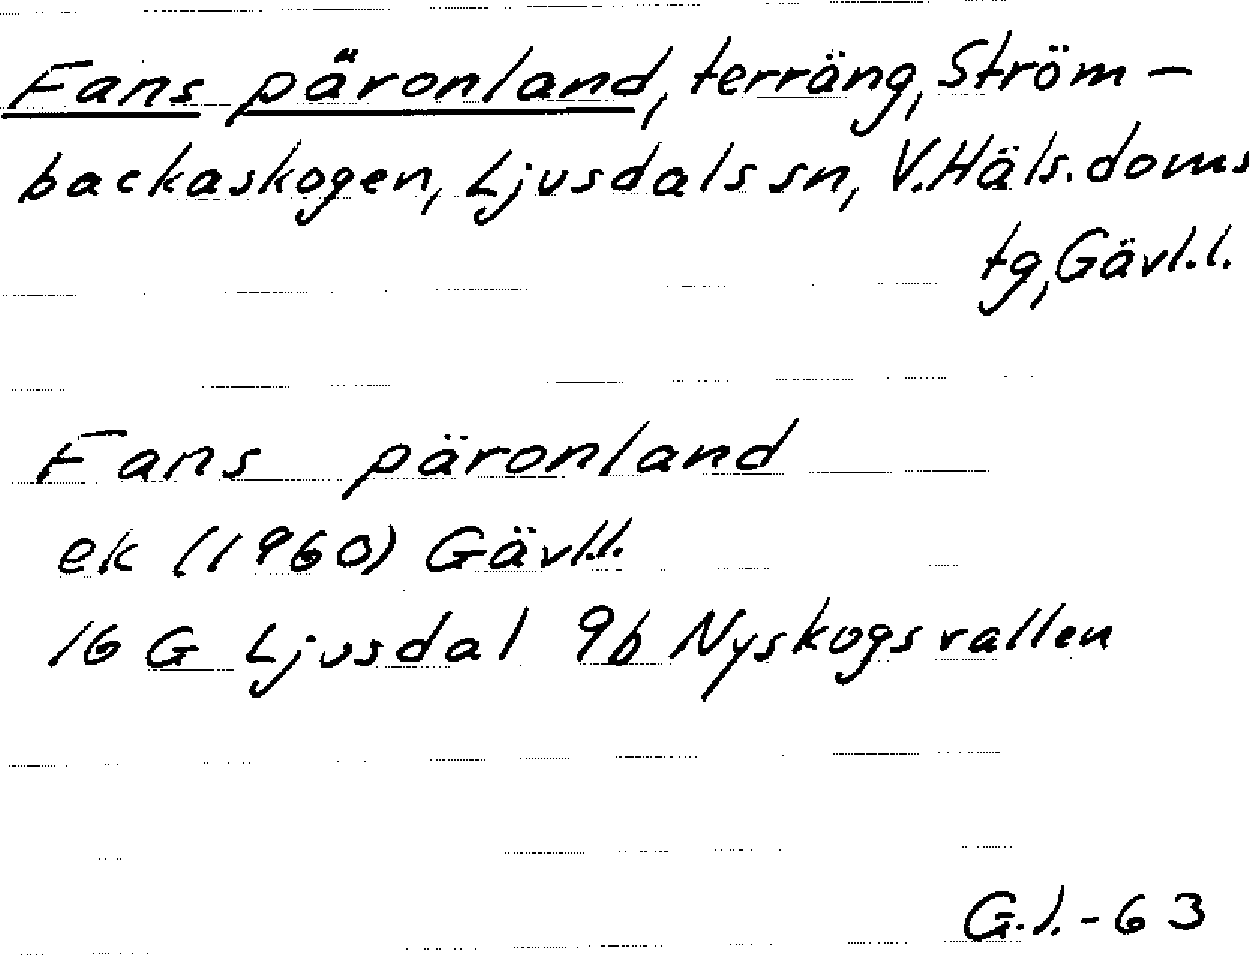 Fans päronland, terräng, Ström-
backaskogen, Ljusdals sn, V. Häls. doms
tg, Gävl.l.
Fans päronland
ek (1960) Gävl.l.
16 G Ljusdal 9b Nyskogsvallen
G.l.-63